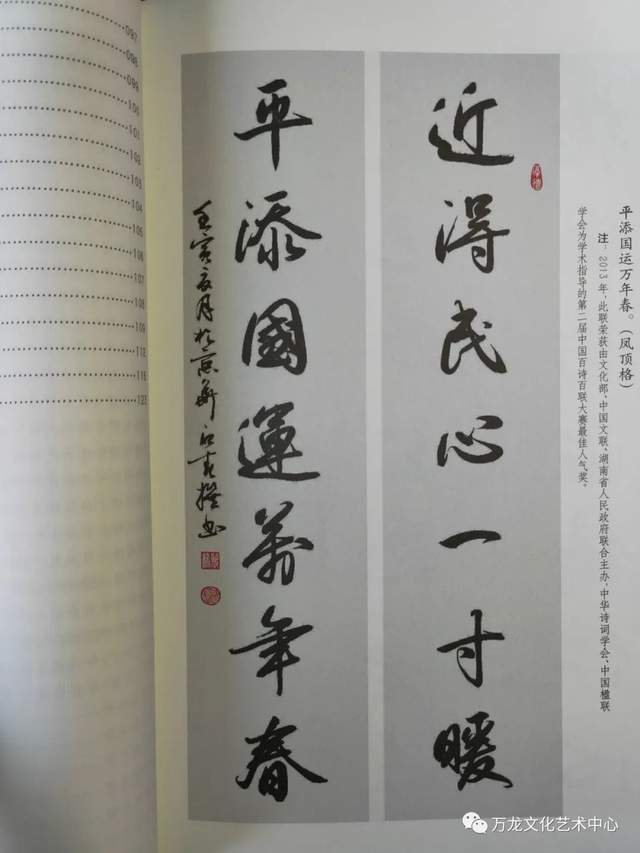 平添国运万年春。(凤顶格)
注:2013年,此联荣获由文化部、中国文联、湖南省人民政府联合主办,中华诗词学会、中国楹联
学会为学术指导的第二届中国百诗百联大赛最佳人气奖。
近得民心一寸暖
平添國運萬年春
壬寅夏月於京華
097
098
099
100
101
103
103
104
106
107
108
109
112
116
121
万龙文化艺术中心